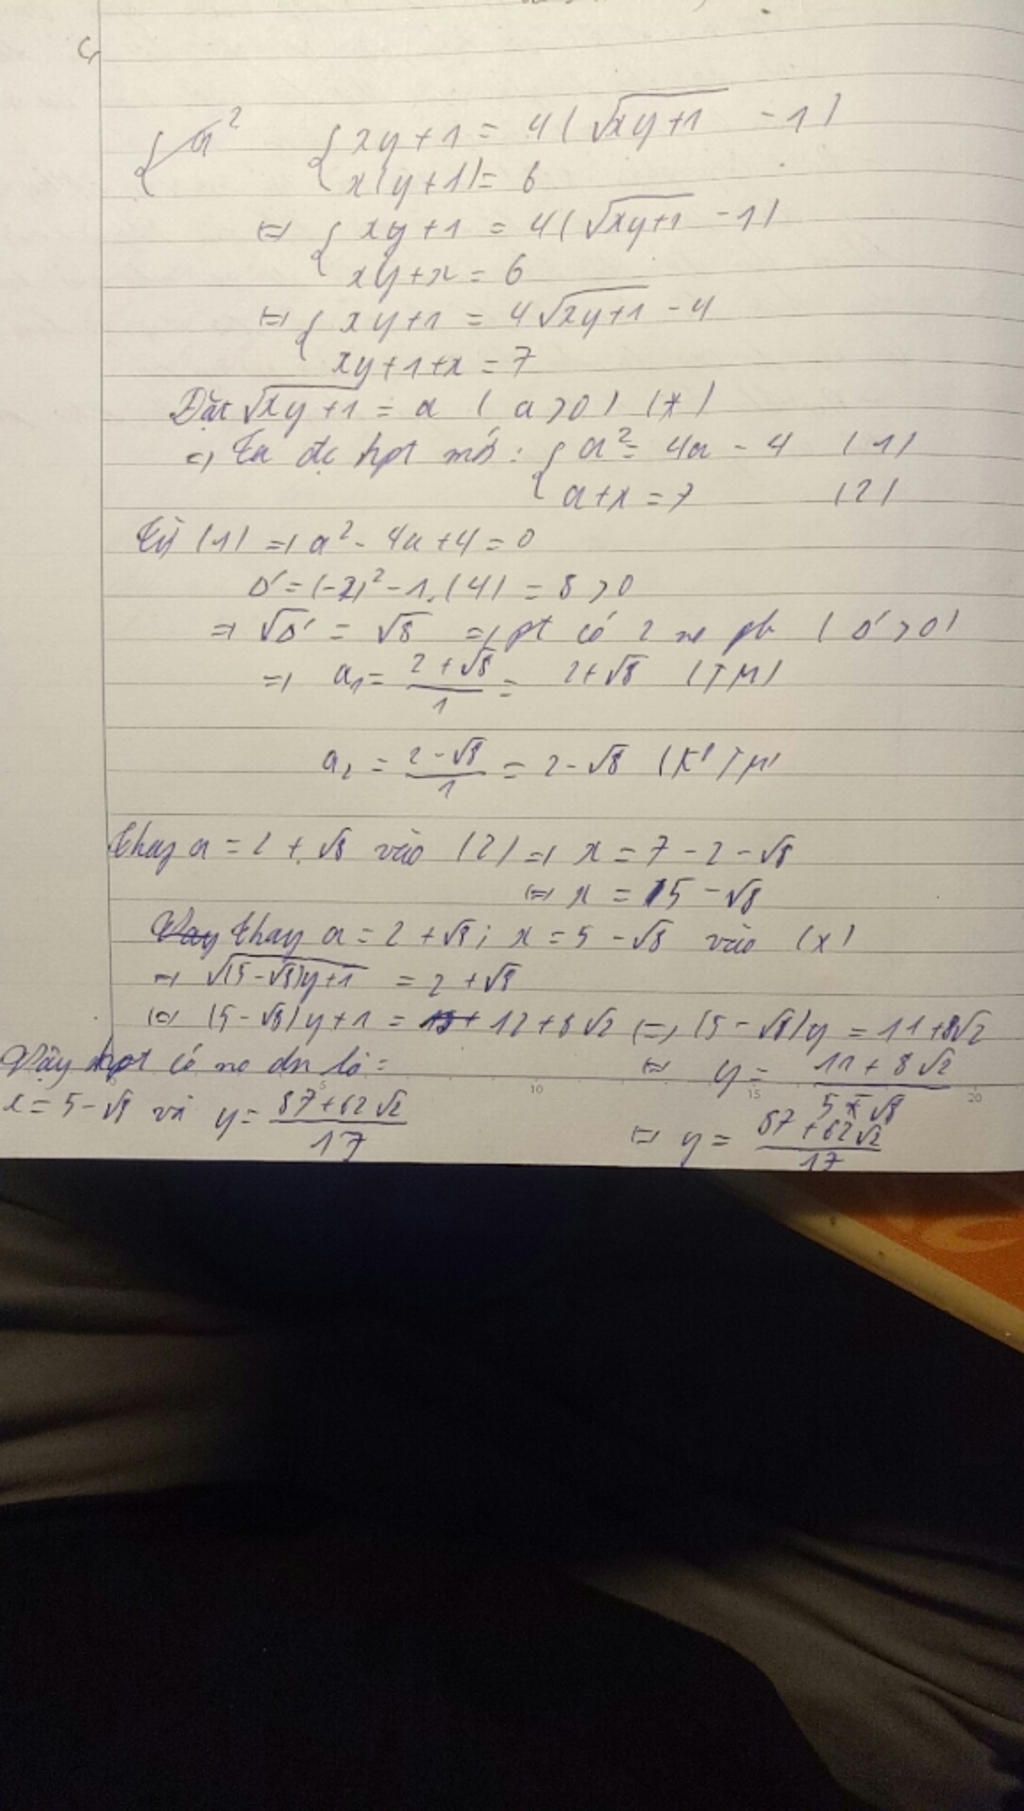 c,
{ a² { xy + 1 = 4(√(xy+1) - 1)
x(y+1) = 6
⇔ { xy + 1 = 4(√(xy+1) - 1)
xy + x = 6
⇔ { xy + 1 = 4√(xy+1) - 4
xy + 1 + x = 7
Đặt √(xy+1) = a (a > 0) (*)
=) Ta đc hpt mới : { a² = 4a - 4 (1)
a + x = 7 (2)
Từ (1) =) a² - 4a + 4 = 0
Δ' = (-2)² - 1.(4) = 8 > 0
=) √Δ' = √8 =) pt có 2 no pb (Δ' > 0)
=) a₁ = (2 + √8)/1 = 2 + √8 (TM)
a₂ = (2 - √8)/1 = 2 - √8 (K' TM)
Thay a = 2 + √8 vào (2) =) x = 7 - 2 - √8
(=) x = 5 - √8
Vay thay a = 2 + √8 ; x = 5 - √8 vào (*)
=) √((5 - √8)y + 1) = 2 + √8
(=) (5 - √8)y + 1 = 12 + 8√2 (=) (5 - √8)y = 11 + 8√2
Vậy hpt có no dn là : ⇔ y = (11 + 8√2)/(5 - √8)
x = 5 - √8 và y = (87 + 62√2)/17 ⇔ y = (87 + 62√2)/17
5 10 15 20